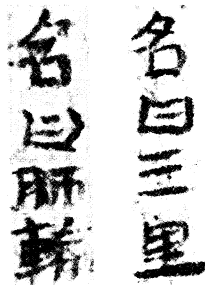 名曰三里
名曰肺輸